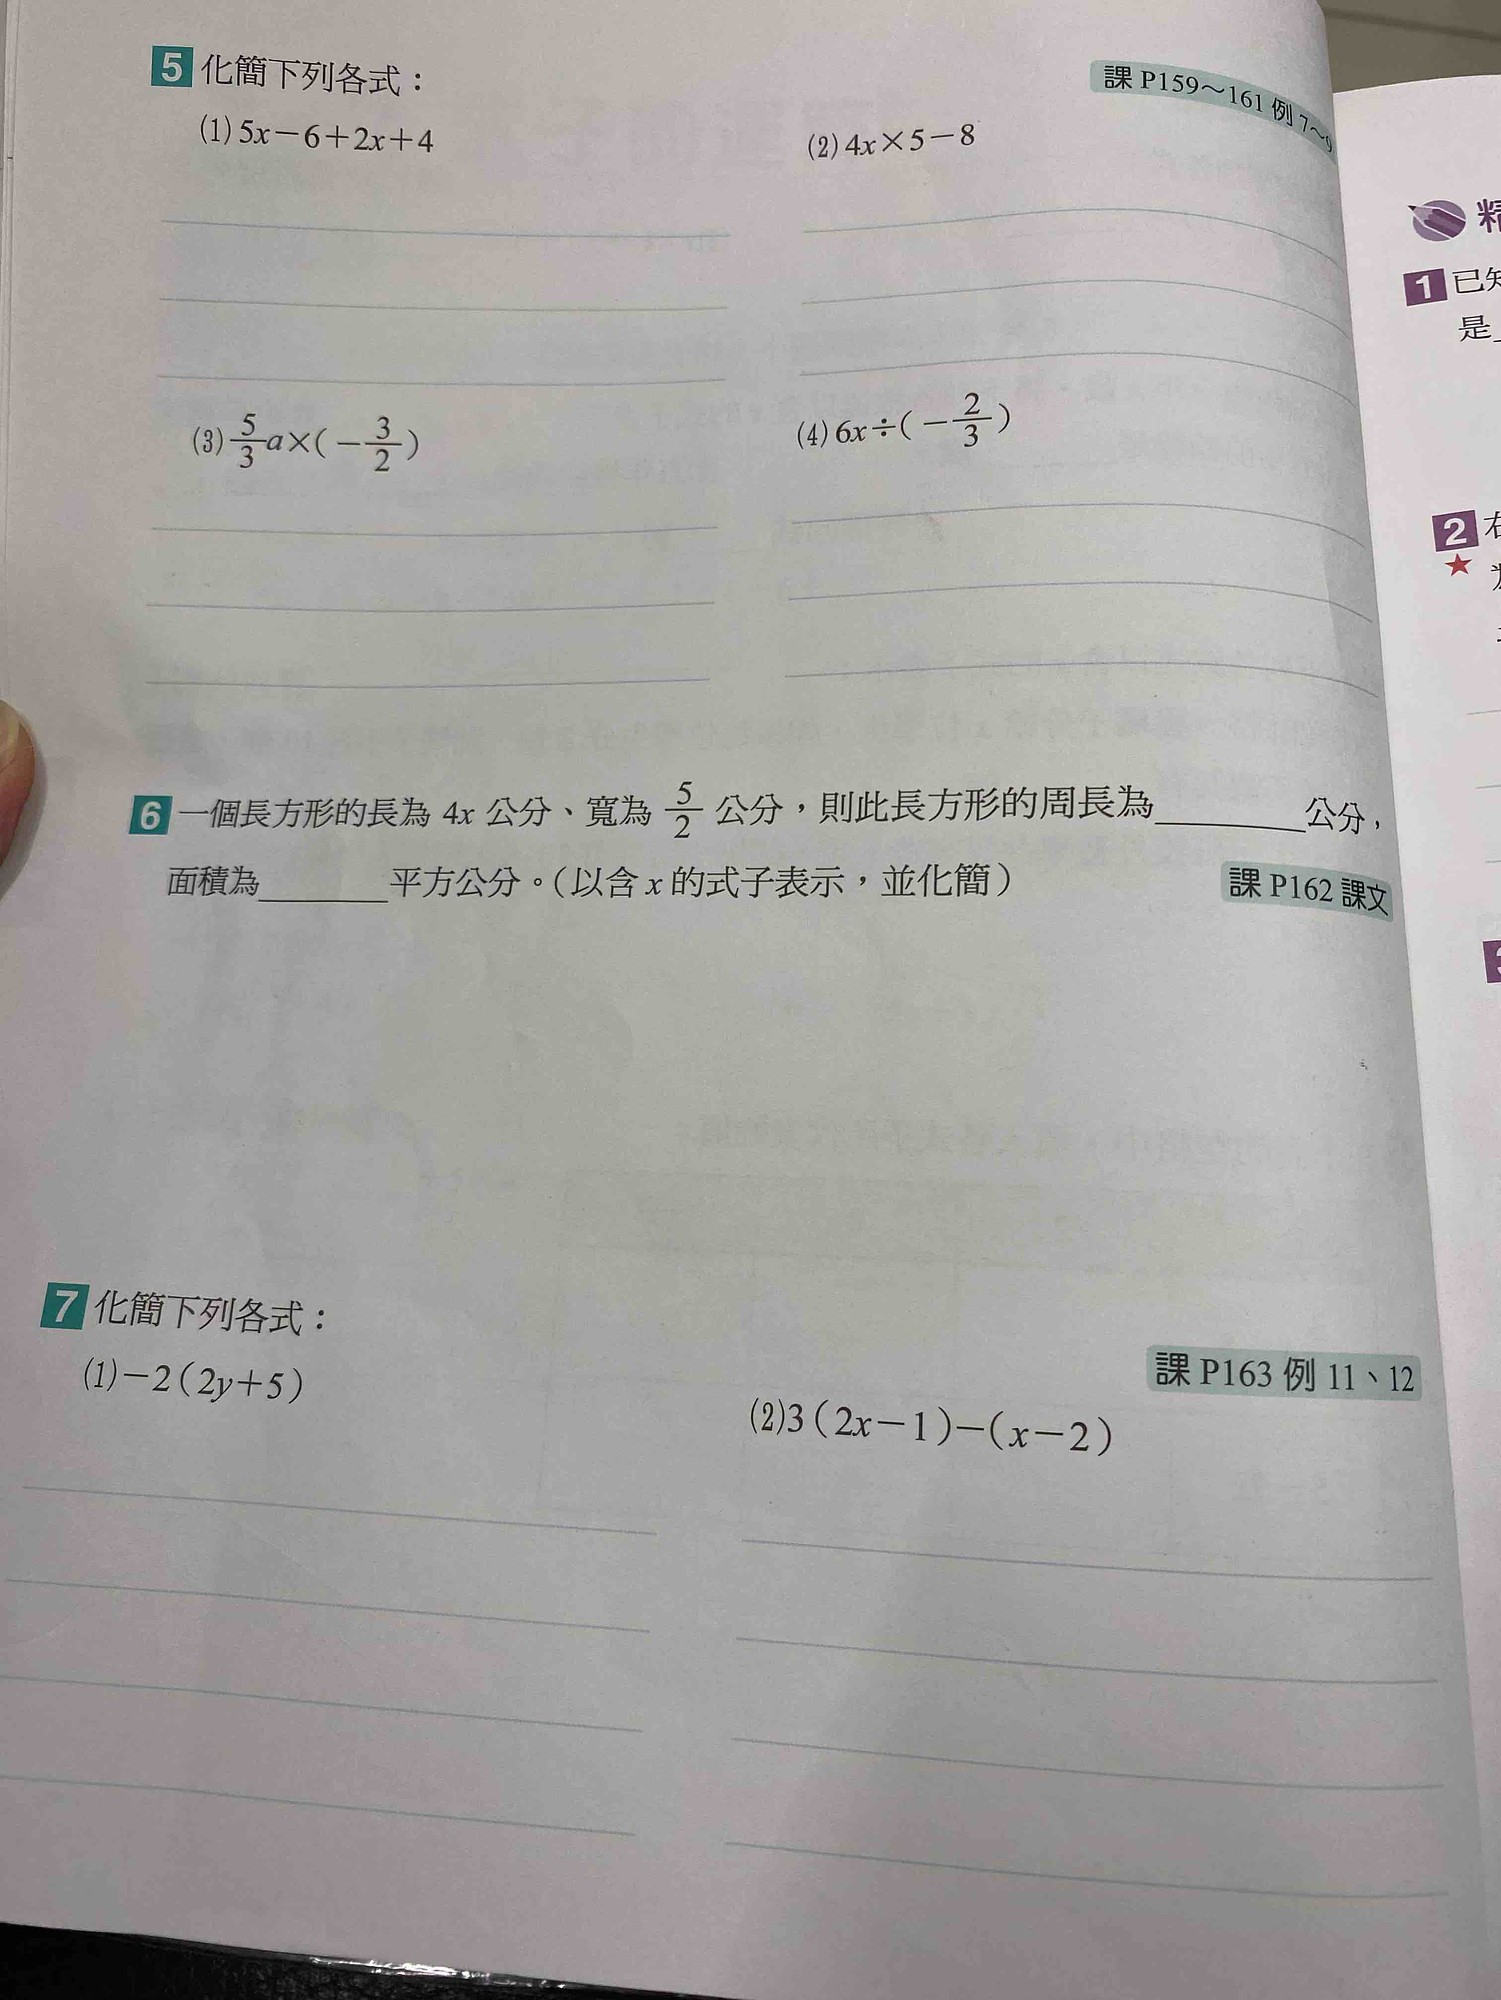 5 化簡下列各式：
課 P159～161 例 7～9
(1) 5x－6＋2x＋4
(2) 4x×5－8
(3) 5/3 a×(－3/2)
(4) 6x÷(－2/3)
6 一個長方形的長為 4x 公分、寬為 5/2 公分，則此長方形的周長為________公分，
面積為_______平方公分。(以含 x 的式子表示，並化簡)
課 P162 課文
7 化簡下列各式：
課 P163 例 11、12
(1)－2(2y＋5)
(2)3(2x－1)－(x－2)
精
1 已知
是
2 右